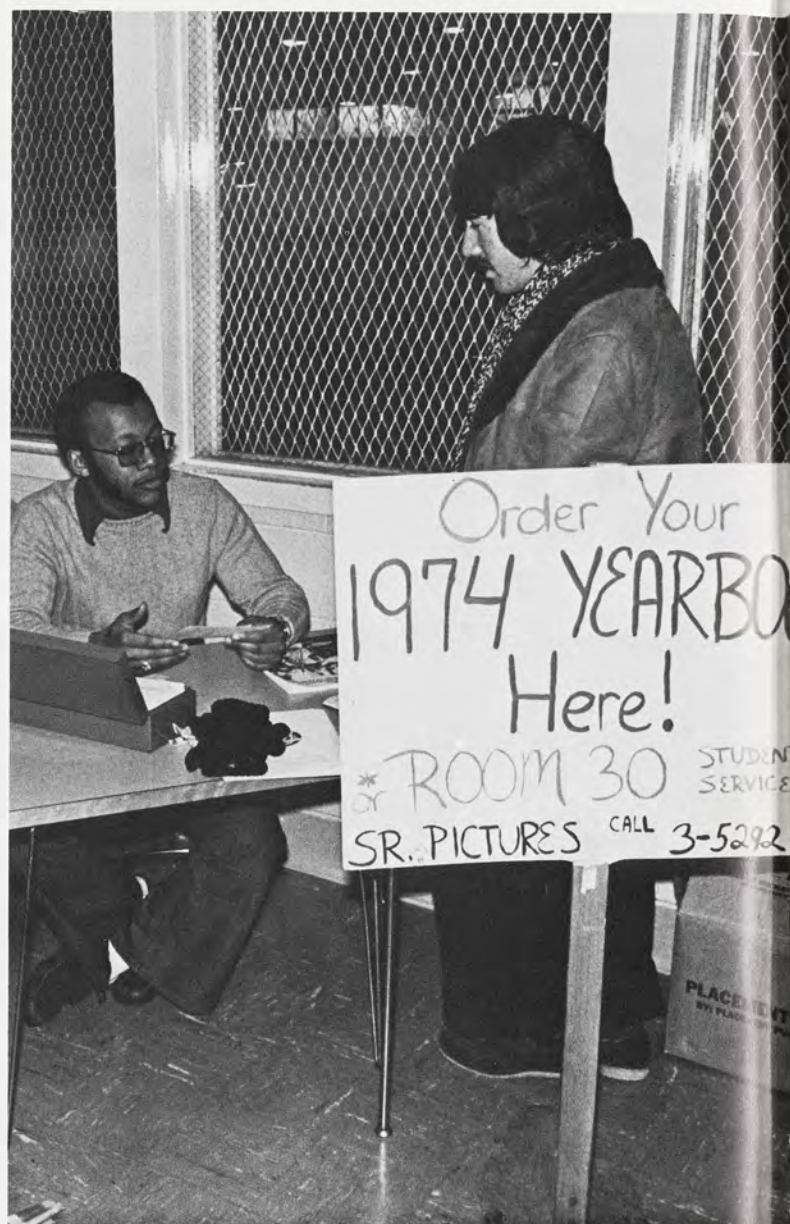 Order Your
1974 YEARBO
Here!
* or ROOM 30 STUDENT
SERVICE
SR. PICTURES CALL 3-5292
PLACEMENT